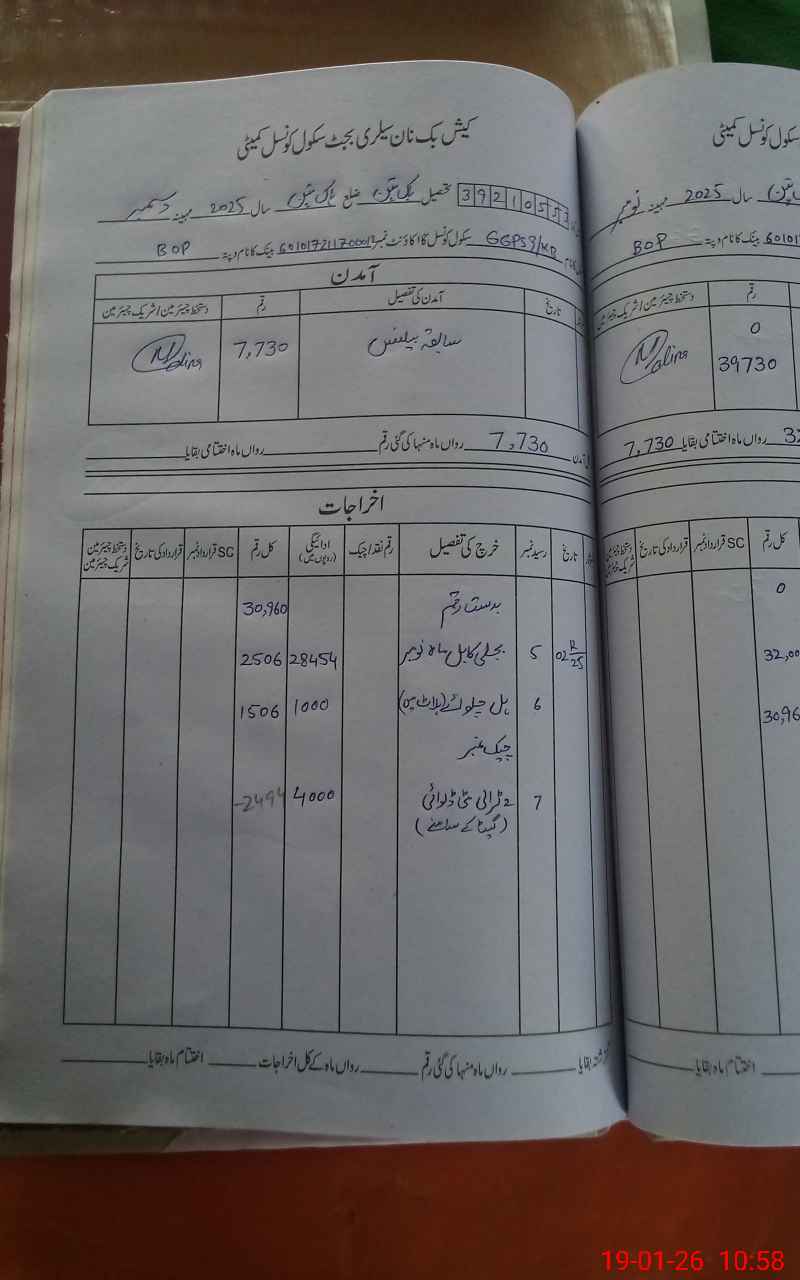 کیش بک نان سیلری بجٹ سکول کونسل کمیٹی
39210553 تحصیل پاکپتن ضلع پاکپتن سال 2025 مہینہ دسمبر
GGPS 9/KB سکول کونسل کا اکاؤنٹ نمبر بینک کا نام و پتہ BOP
آمدن
تاریخ آمدن کی تفصیل رقم دستخط چیئرمین/شریک چیئرمین
سابقہ بیلنس 7,730
آمدن 7,730 رواں ماہ منہا کی گئی رقم رواں ماہ اختتامی بقایا
اخراجات
تاریخ رسید نمبر خرچ کی تفصیل رقم نقد/چیک ادائیگی (روپوں میں) کل رقم SC قرارداد نمبر قرارداد کی تاریخ دستخط چیئرمین شریک چیئرمین
بدست رقم 30,960
02 12/25 5 بجلی کا بل ماہ نومبر 28454 2506
6 ہل چلوائے (پلاٹ میں) 1000 1506
چیک نمبر
7 2 ٹرالی مٹی ڈلوائی 4000 -2494
(گیٹ کے سامنے)
گزشتہ بقایا رواں ماہ منہا کی گئی رقم رواں ماہ کے کل اخراجات اختتام ماہ بقایا
سکول کونسل کمیٹی
سال 2025 مہینہ نومبر
بینک کا نام و پتہ BOP
رقم دستخط چیئرمین/شریک چیئرمین
0
39730
رواں ماہ اختتامی بقایا 7,730
کل رقم SC قرارداد نمبر قرارداد کی تاریخ دستخط چیئرمین شریک چیئرمین
0
32,00
30,96
اختتام ماہ بقایا
19-01-26 10:58